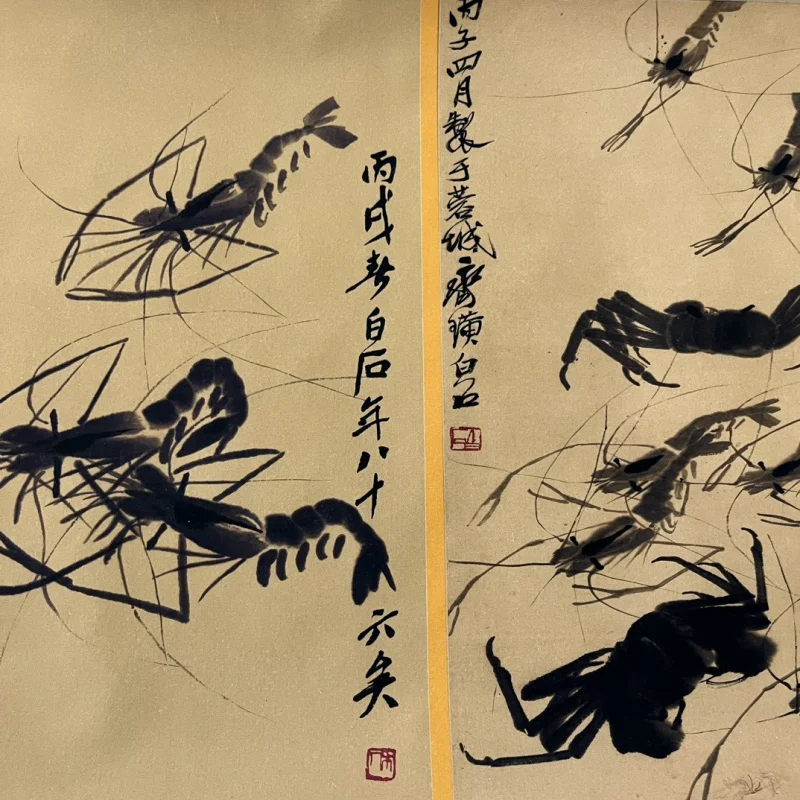 丙戌春白石年八十六矣
木人
丙子四月製于蓉城齊璜白石
白石